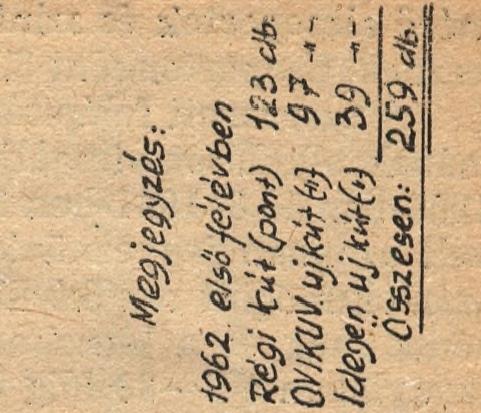 Megjegyzés:
1962. első félévben
Régi kút (pont) 123 db.
OVIKUV új kút (-"-) 97 -"-
Idegen új kút (-"-) 39 -"-
Összesen: 259 db.